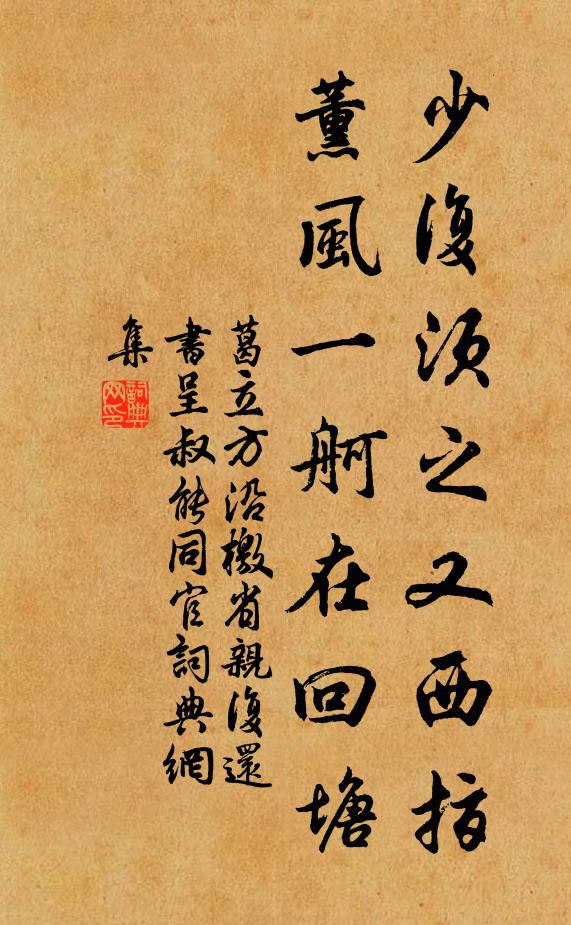 少復須之又西指
薰風一舸在回塘
葛立方沿檄省親復還
書呈叔能同官詞典網
集
詞典
网印